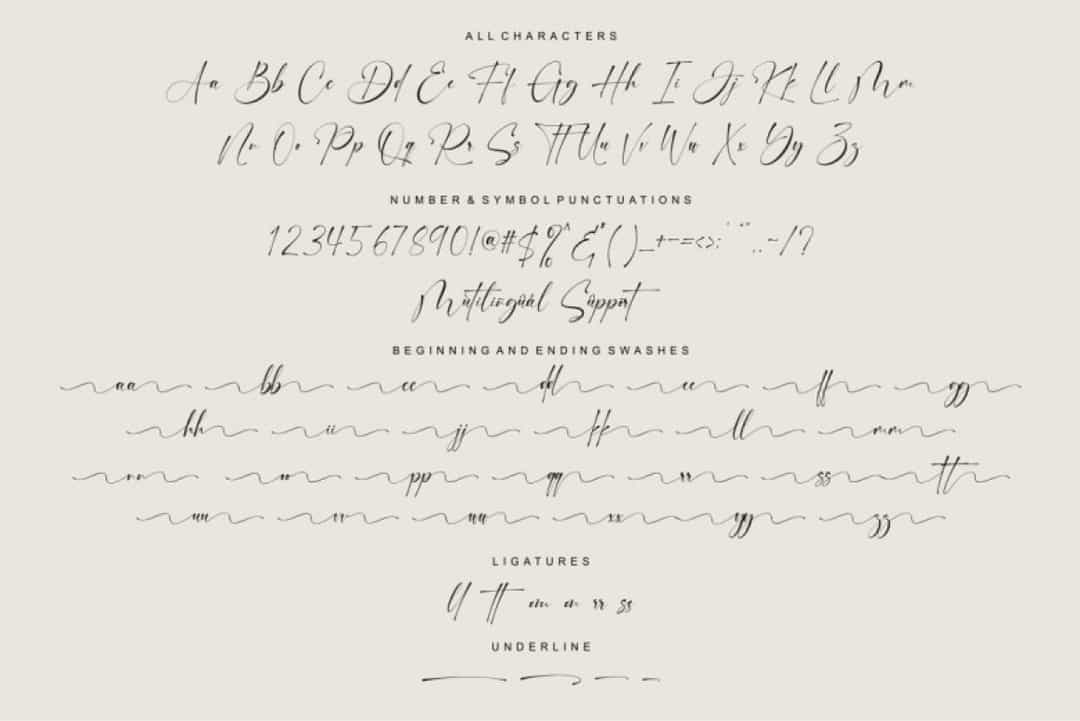 ALL CHARACTERS
Aa Bb Cc Dd Ee Ff Gg Hh Ii Jj Kk Ll Mm
Nn Oo Pp Qq Rr Ss Tt Uu Vv Ww Xx Yy Zz
NUMBER & SYMBOL PUNCTUATIONS
1234567890!@#$%^&*()_+-=<>;:'"",.~/?
Mutilingual Support
BEGINNING AND ENDING SWASHES
aa bb cc dd ee ff gg
hh ii jj kk ll mm
nn oo pp qq rr ss tt
uu vv ww xx yy zz
LIGATURES
ll tt rr ss
UNDERLINE